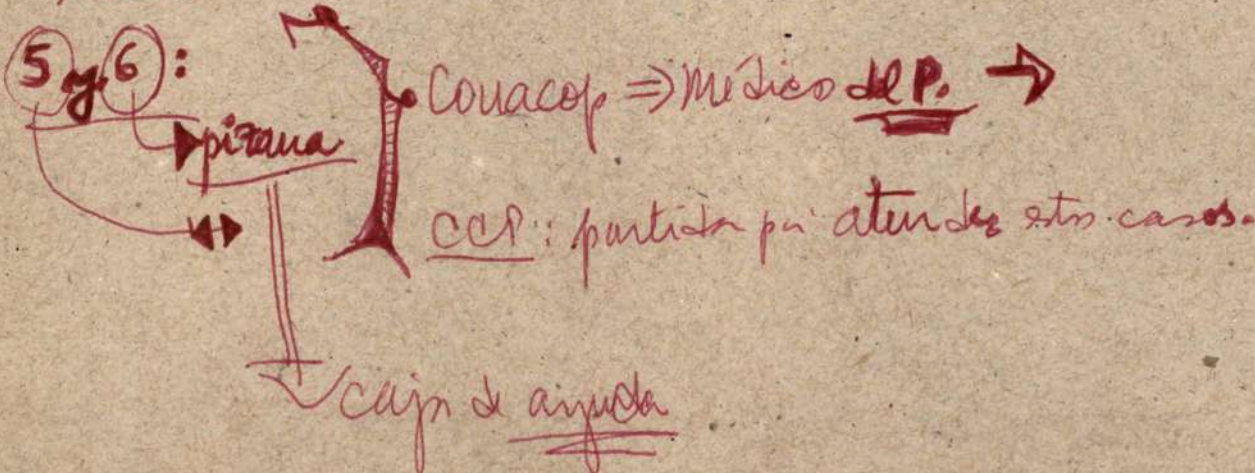 5 y 6:
pizana
Conacop ⇒ Médico del P. →
CCP: partida pa' atender estos casos.
caja de ayuda